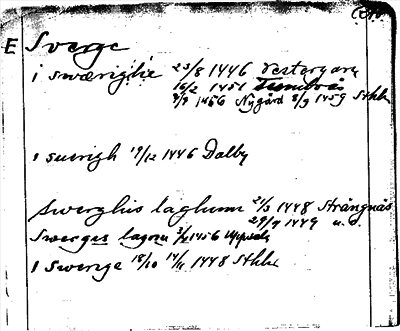 E Sverge
i swærighe 23/8 1446 Vestergarn
16/2 1451
8/9 1456 Nygård 8/9 1459 Sthlm
i suerigh 19/12 1446 Dalby
Swerghis laghum 21/3 1448 Strängnäs
29/4 1449 u. o.
Swerges lagom 3/2 1456 Uppsala
i Swerige 18/10 14/11 1448 Sthlm